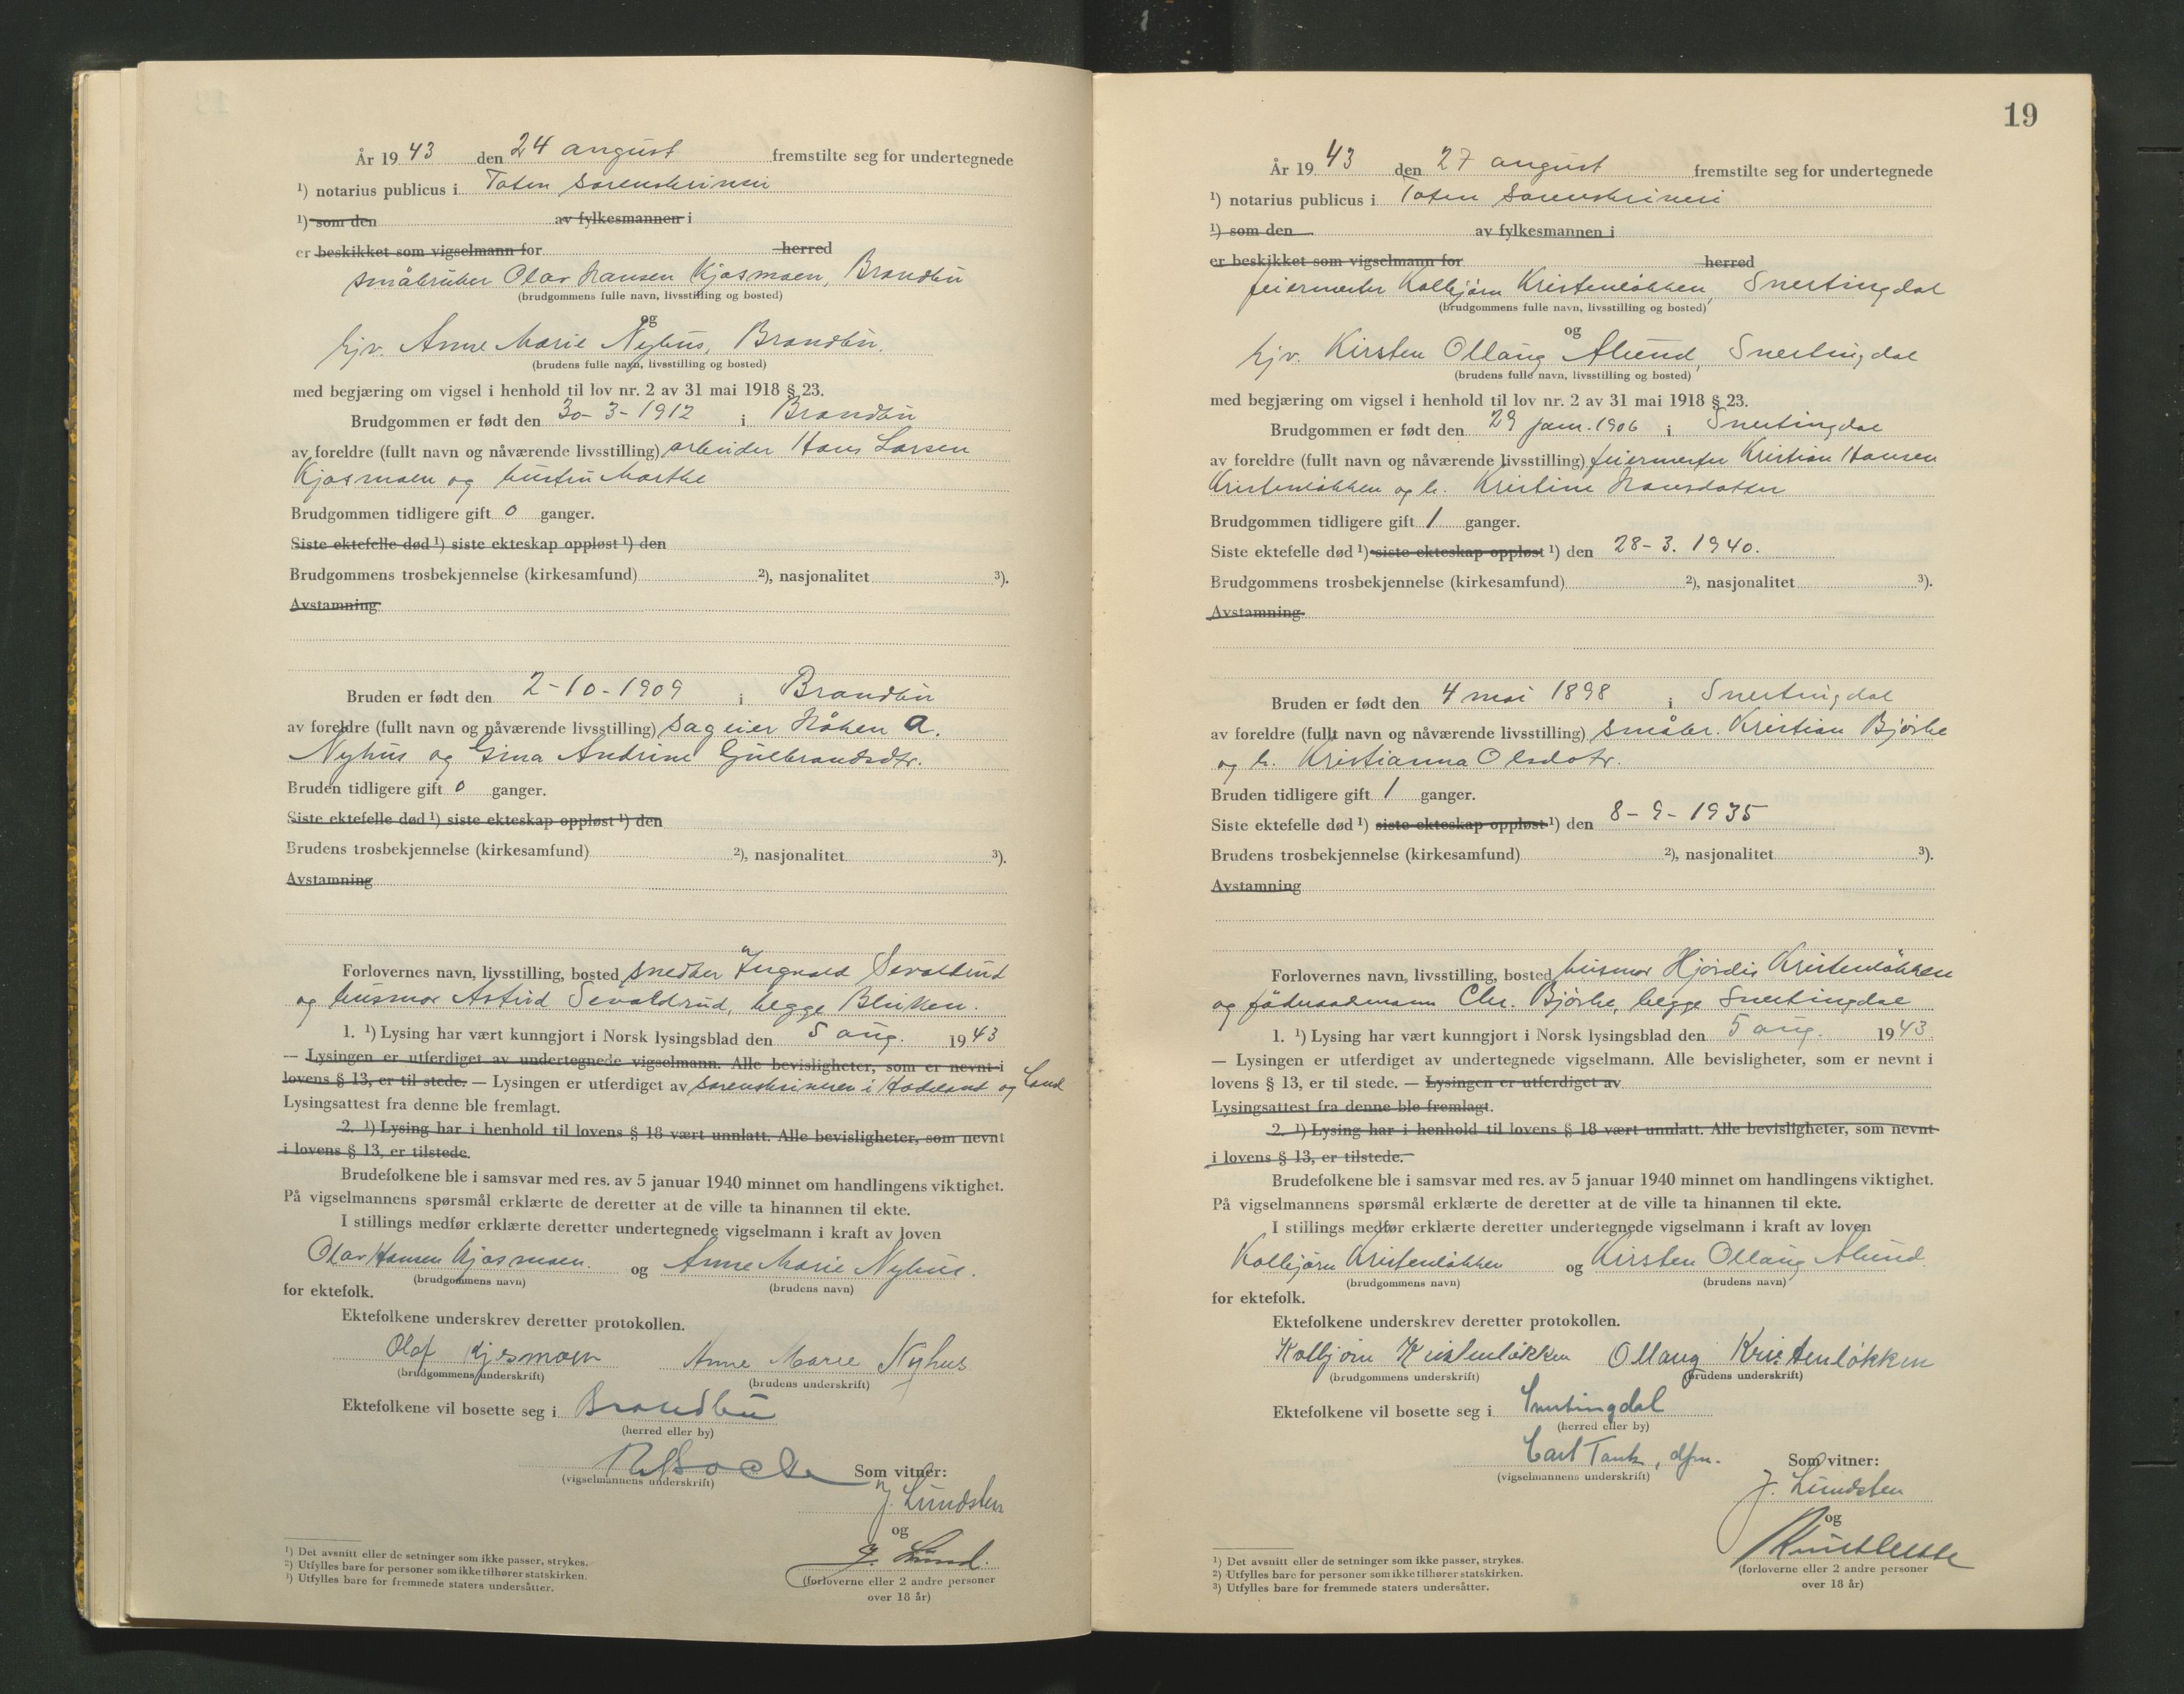 År 19 43 den 24 august fremstilte seg for undertegnede
¹) notarius publicus i Toten sorenskriveri
¹) som den av fylkesmannen i
er beskikket som vigselmann for herred
småbruker Olav Hansen Kjosmoen, Brandbu
(brudgommens fulle navn, livsstilling og bosted)
og
hjv. Anne Marie Nyhus, Brandbu.
(brudens fulle navn, livsstilling og bosted)
med begjæring om vigsel i henhold til lov nr. 2 av 31 mai 1918 § 23.
Brudgommen er født den 30-3-1912 i Brandbu
av foreldre (fullt navn og nåværende livsstilling) arbeider Hans Larsen
Kjosmoen og hustru Marthe
Brudgommen tidligere gift 0 ganger.
Siste ektefelle død ¹) siste ekteskap oppløst ¹) den
Brudgommens trosbekjennelse (kirkesamfund) ²), nasjonalitet ³).
Avstamning
Bruden er født den 2-10-1909 i Brandbu
av foreldre (fullt navn og nåværende livsstilling) sageier Håken A.
Nyhus og Gina Andrine Gulbrandsdtr.
Bruden tidligere gift 0 ganger.
Siste ektefelle død ¹) siste ekteskap oppløst ¹) den
Brudens trosbekjennelse (kirkesamfund) ²), nasjonalitet ³).
Avstamning
Forlovernes navn, livsstilling, bosted snedker Ingvald Sevaldrud
og husmor Astrid Sevaldrud, begge Bleiken.
1. ¹) Lysing har vært kunngjort i Norsk lysingsblad den 5 aug. 19 43
— Lysingen er utferdiget av undertegnede vigselmann. Alle bevisligheter, som er nevnt i
lovens § 13, er til stede. — Lysingen er utferdiget av sorenskriveren i Hadeland og Land
Lysingsattest fra denne ble fremlagt.
2. ¹) Lysing har i henhold til lovens § 18 vært unnlatt. Alle bevisligheter, som nevnt
i lovens § 13, er tilstede.
Brudefolkene ble i samsvar med res. av 5 januar 1940 minnet om handlingens viktighet.
På vigselmannens spørsmål erklærte de deretter at de ville ta hinannen til ekte.
I stillings medfør erklærte deretter undertegnede vigselmann i kraft av loven
Olav Hansen Kjosmoen. og Anne Marie Nyhus.
(brudgommens navn) (brudens navn)
for ektefolk.
Ektefolkene underskrev deretter protokollen.
Olaf Kjosmoen Anne Marie Nyhus
(brudgommens underskrift) (brudens underskrift)
Ektefolkene vil bosette seg i Brandbu
(herred eller by)
(vigselmannens underskrift) Som vitner:
J. Lundsten
og
J. Lund.
(forloverne eller 2 andre personer
over 18 år)
¹) Det avsnitt eller de setninger som ikke passer, strykes.
²) Utfylles bare for personer som ikke tilhører statskirken.
³) Utfylles bare for fremmede staters undersåtter.
19
År 19 43 den 27 august fremstilte seg for undertegnede
¹) notarius publicus i Toten sorenskriveri
¹) som den av fylkesmannen i
er beskikket som vigselmann for herred
feiermester Kolbjørn Kristenløkken, Snertingdal
(brudgommens fulle navn, livsstilling og bosted)
og
hjv. Kirsten Ollaug Alund, Snertingdal
(brudens fulle navn, livsstilling og bosted)
med begjæring om vigsel i henhold til lov nr. 2 av 31 mai 1918 § 23.
Brudgommen er født den 29 jan. 1906 i Snertingdal
av foreldre (fullt navn og nåværende livsstilling) feiermester Kristian Hansen
Kristenløkken og h. Kristine Hansdatter
Brudgommen tidligere gift 1 ganger.
Siste ektefelle død ¹) siste ekteskap oppløst ¹) den 28-3. 1940.
Brudgommens trosbekjennelse (kirkesamfund) ²), nasjonalitet ³).
Avstamning
Bruden er født den 4 mai 1898 i Snertingdal
av foreldre (fullt navn og nåværende livsstilling) småbr. Kristian Bjørke
og h. Kristianna Olsdtr.
Bruden tidligere gift 1 ganger.
Siste ektefelle død ¹) siste ekteskap oppløst ¹) den 8-9-1935
Brudens trosbekjennelse (kirkesamfund) ²), nasjonalitet ³).
Avstamning
Forlovernes navn, livsstilling, bosted husmor Hjørdis Kristenløkken
og föderaadsmann Chr. Bjørke, begge Snertingdal
1. ¹) Lysing har vært kunngjort i Norsk lysingsblad den 5 aug. 19 43
— Lysingen er utferdiget av undertegnede vigselmann. Alle bevisligheter, som er nevnt i
lovens § 13, er til stede. — Lysingen er utferdiget av
Lysingsattest fra denne ble fremlagt.
2. ¹) Lysing har i henhold til lovens § 18 vært unnlatt. Alle bevisligheter, som nevnt
i lovens § 13, er tilstede.
Brudefolkene ble i samsvar med res. av 5 januar 1940 minnet om handlingens viktighet.
På vigselmannens spørsmål erklærte de deretter at de ville ta hinannen til ekte.
I stillings medfør erklærte deretter undertegnede vigselmann i kraft av loven
Kolbjørn Kristenløkken og Kirsten Ollaug Alund
(brudgommens navn) (brudens navn)
for ektefolk.
Ektefolkene underskrev deretter protokollen.
Kolbjørn Kristenløkken Ollaug Kristenløkken
(brudgommens underskrift) (brudens underskrift)
Ektefolkene vil bosette seg i Snertingdal
(herred eller by)
Carl Tank, dfm.
(vigselmannens underskrift) Som vitner:
J. Lundsten
og
(forloverne eller 2 andre personer
over 18 år)
¹) Det avsnitt eller de setninger som ikke passer, strykes.
²) Utfylles bare for personer som ikke tilhører statskirken.
³) Utfylles bare for fremmede staters undersåtter.